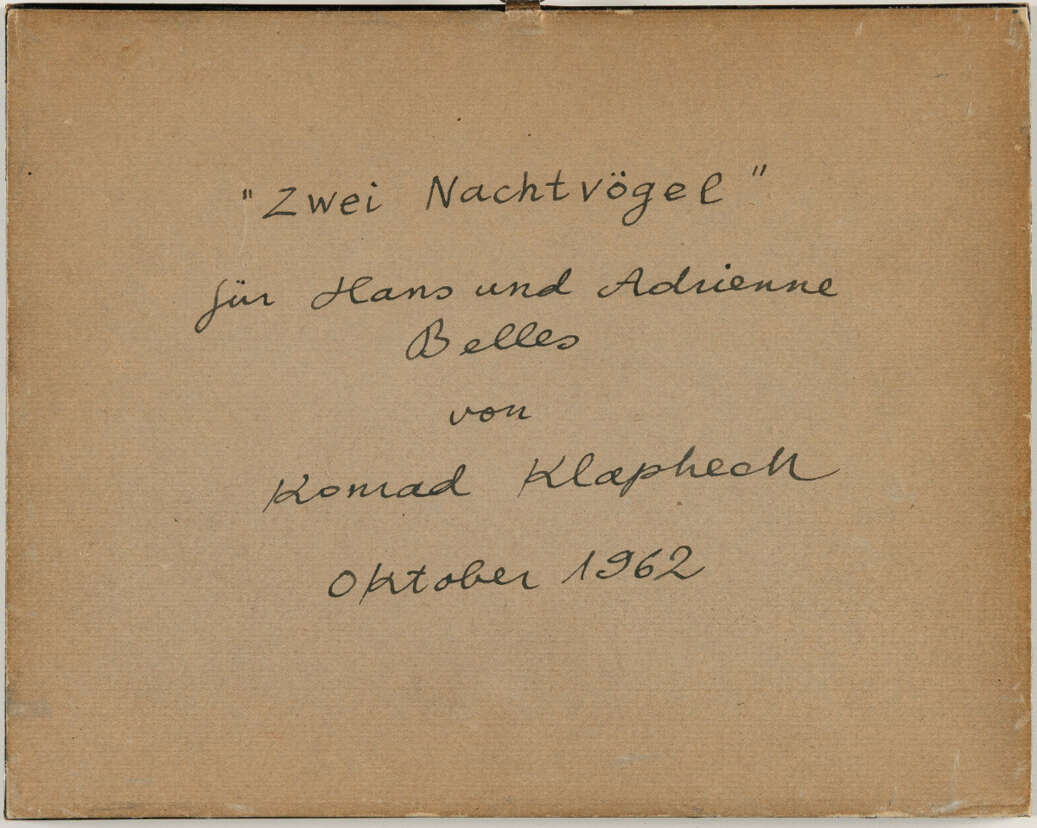 "Zwei Nachtvögel"
für Hans und Adrienne
Belles
von
Konrad Klapheck
Oktober 1962